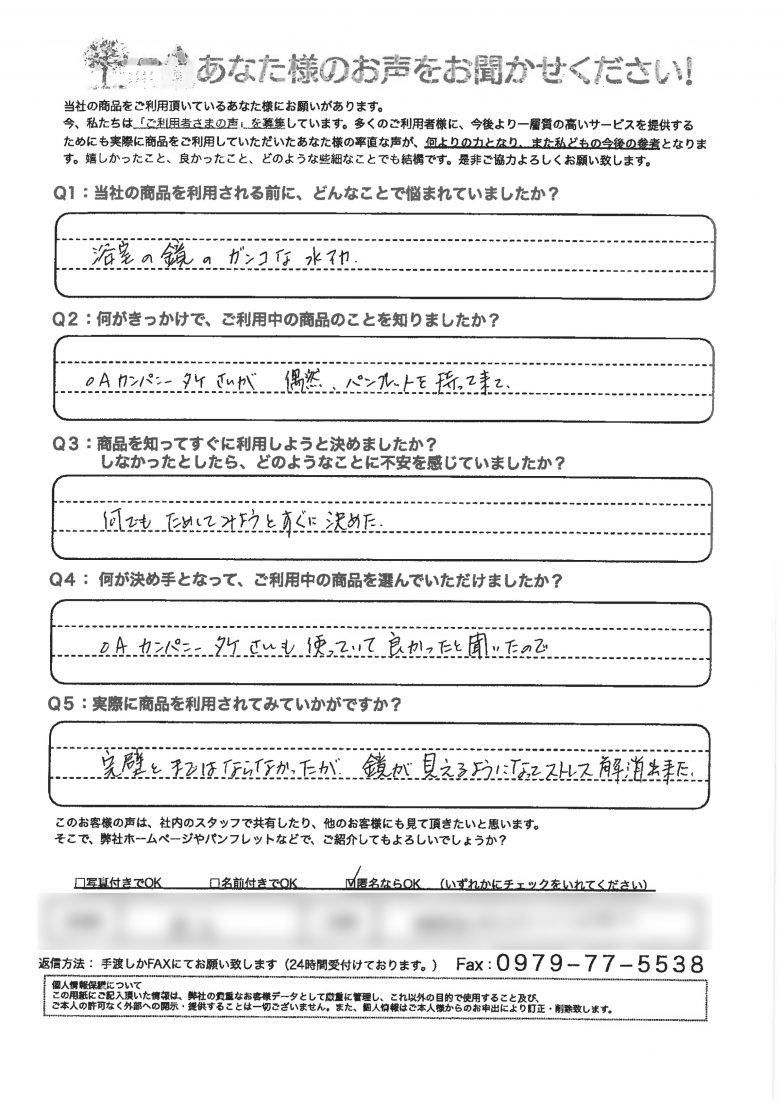 あなた様のお声をお聞かせください!
当社の商品をご利用頂いているあなた様にお願いがあります。
今、私たちは「ご利用者さまの声」を募集しています。多くのご利用者様に、今後より一層質の高いサービスを提供する
ためにも実際に商品をご利用していただいたあなた様の率直な声が、何よりの力となり、また私どもの今後の参考となりま
す。嬉しかったこと、良かったこと、どのような些細なことでも結構です。是非ご協力よろしくお願い致します。
Q1：当社の商品を利用される前に、どんなことで悩まれていましたか？
浴室の鏡のガンコな水アカ.
Q2：何がきっかけで、ご利用中の商品のことを知りましたか？
OAカンパニータケさんが 偶然、パンフレットを持って来て、
Q3：商品を知ってすぐに利用しようと決めましたか？
しなかったとしたら、どのようなことに不安を感じていましたか？
何でもためしてみようとすぐに決めた.
Q4： 何が決め手となって、ご利用中の商品を選んでいただけましたか？
OAカンパニータケさんも使っていて良かったと聞いたので
Q5：実際に商品を利用されてみていかがですか？
完璧とまではならなかったが. 鏡が見えるようになってストレス解消出来た.
このお客様の声は、社内のスタッフで共有したり、他のお客様にも見て頂きたいと思います。
そこで、弊社ホームページやパンフレットなどで、ご紹介してもよろしいでしょうか？
□写真付きでOK □名前付きでOK ☑匿名ならOK （いずれかにチェックをいれてください）
返信方法： 手渡しかFAXにてお願い致します（24時間受付けております。） Fax：0979-77-5538
個人情報保護について
この用紙にご記入頂いた情報は、弊社の貴重なお客様データとして厳重に管理し、これ以外の目的で使用すること及び、
ご本人の許可なく外部への開示・提供することは一切ございません。また、個人情報はご本人様からのお申出により訂正・削除致します。